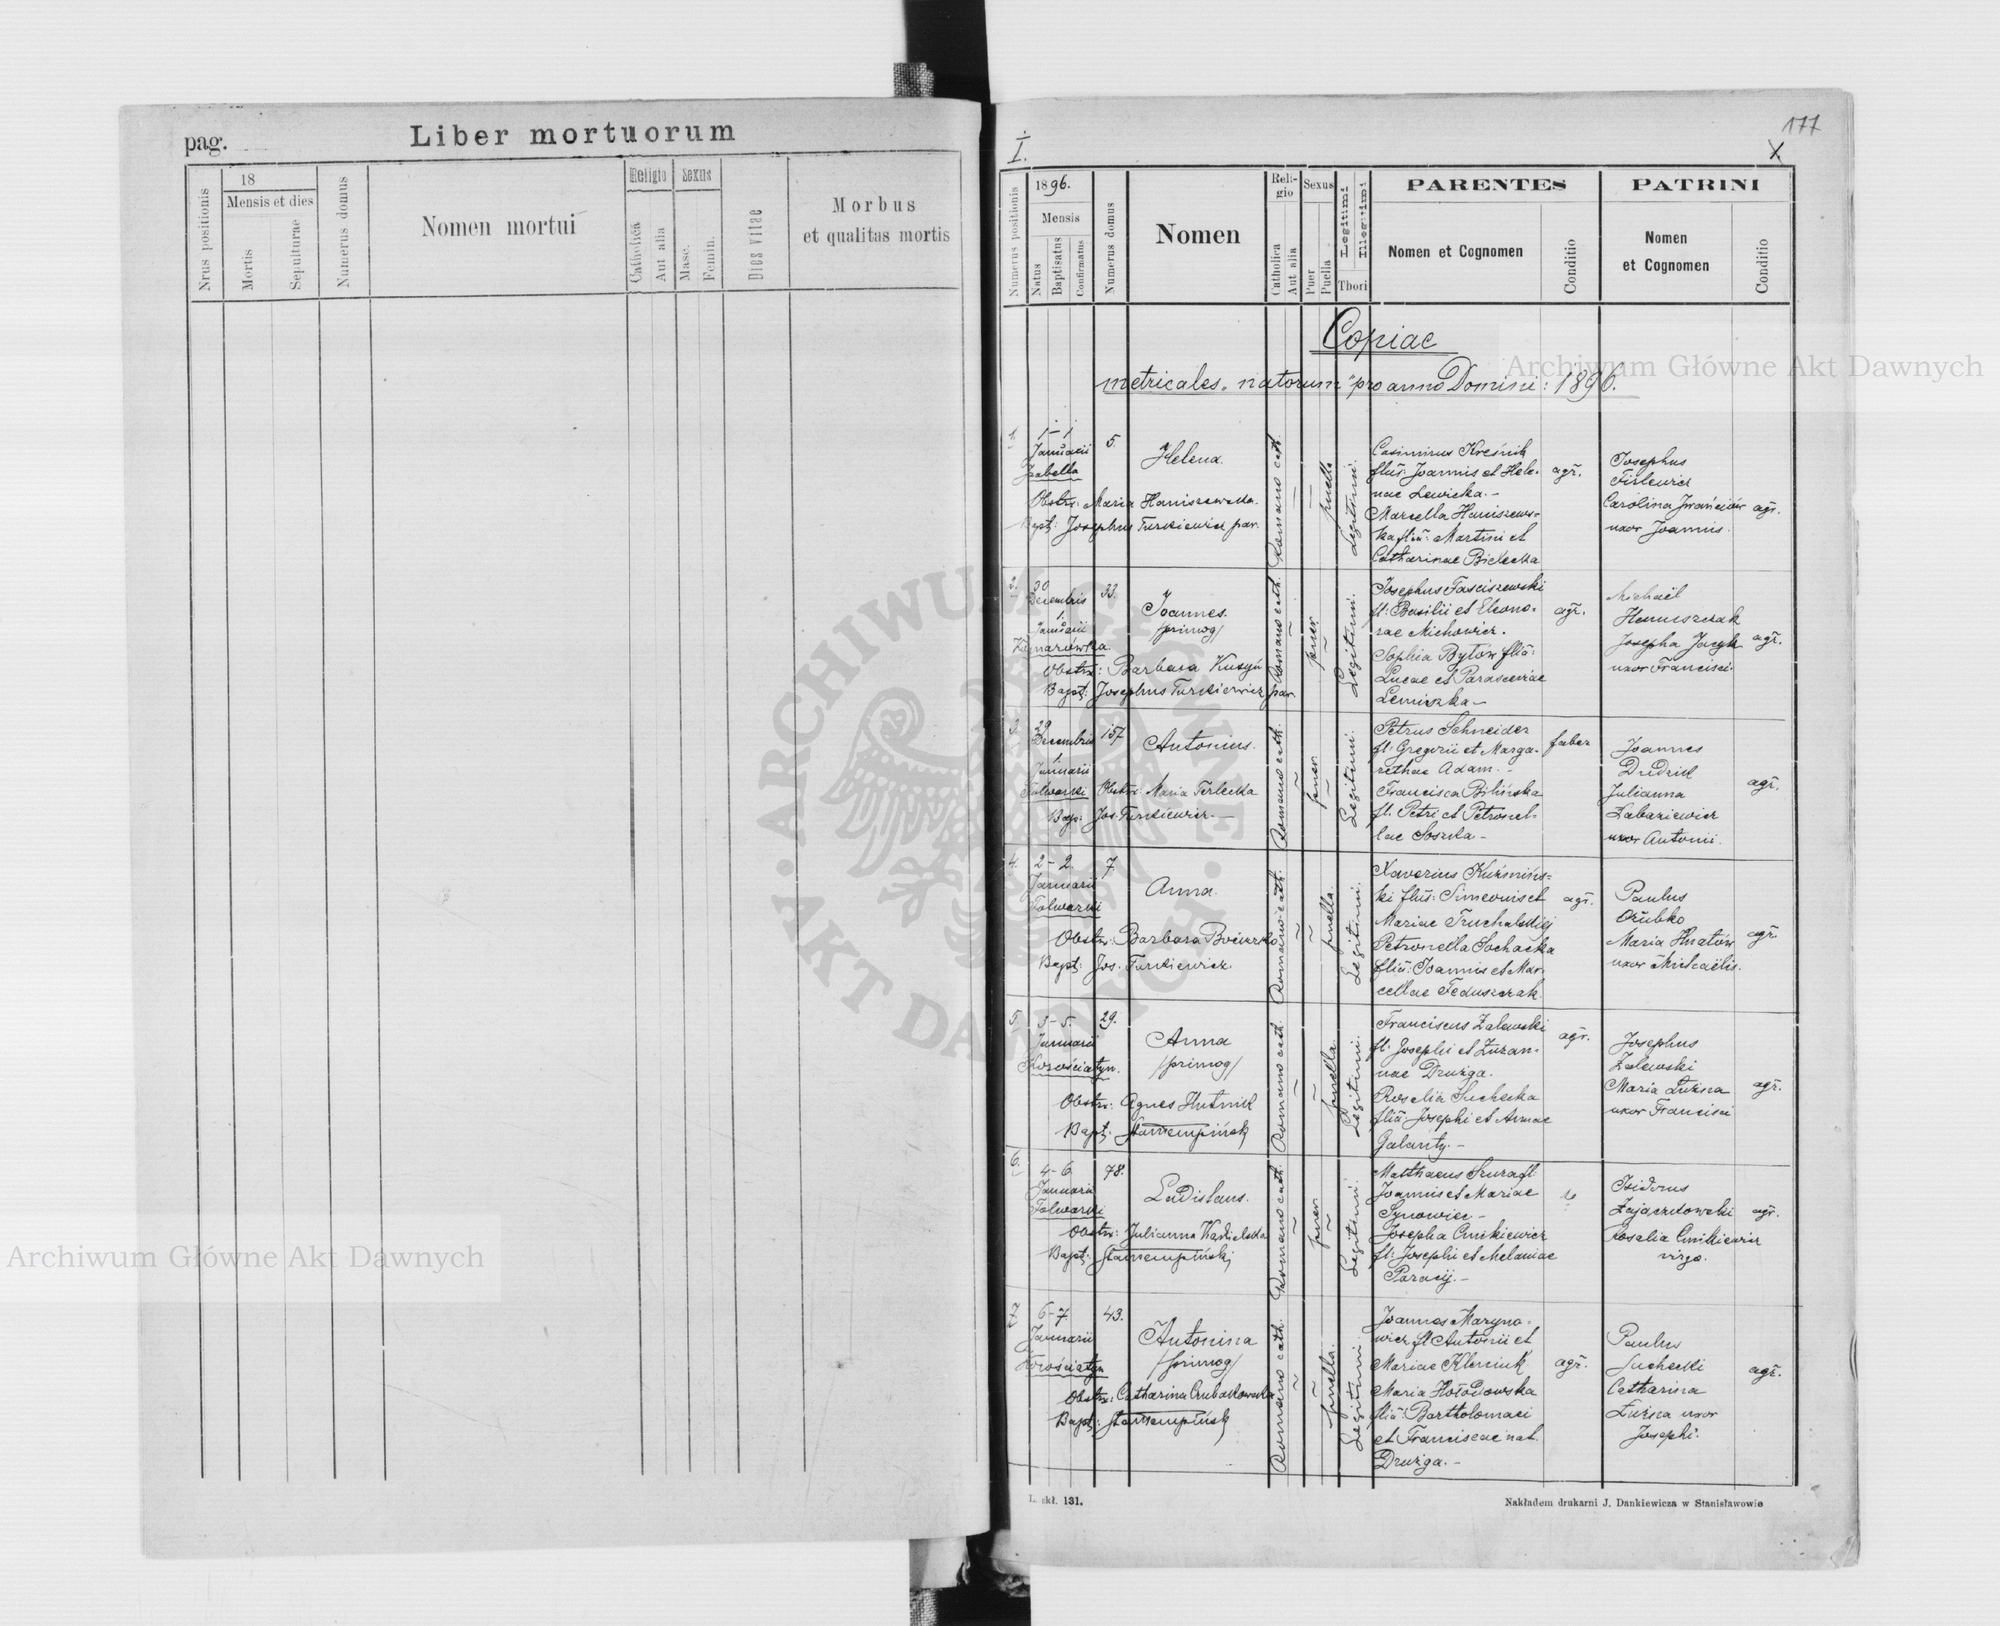 pag.
Liber mortuorum
Nrus positionis
18
Mensis et dies
Mortis
Sepulturae
Numerus domus
Nomen mortui
Religio
Catholica
Aut alia
Sexus
Masc.
Femin.
Dies vitae
Morbus
et qualitas mortis
177
I.
X
Numerus positionis
1896.
Mensis
Natus
Baptisatus
Confirmatus
Numerus domus
Nomen
Reli-
gio
Catholica
Aut alia
Sexus
Puer
Puella
Legitimi
Illegitimi
Thori
PARENTES
Nomen et Cognomen
Conditio
PATRINI
Nomen
et Cognomen
Conditio
Copiae
metricales „natorum" pro anno Domini: 1896.
1.
1-1
Januarii
5.
Helena.
Obstr: Maria Haniszewska.
Bapt: Josephus Turkiewicz par.
Romano cath.
puella
Legitimi.
Casimirus Kreśnik
flius: Joannis et Hele-
nae Lewicka.-
Marcella Haniszews-
ka flia: Martini et
Catharinae Bielecka
agr.
Josephus
Firlewicz
Carolina Iwańciów
uxor Joannis.
agr.
2.
30
Decembris
1.
Januarii
33.
Joannes.
/primog/
Obstr: Barbara Kusyń
Bapt: Josephus Turkiewicz par.
Romano cath.
puer
Legitimi.
Josephus Fasciszewski
fl: Basilii et Eleono-
rae Michowicz.
Sophia Bytów flia:
Lucae et Parasceviae
Lemiszka-
agr.
Michaël
Hanuszczak
Josepha Jacyk
uxor Francisci.
agr.
3.
29
Decembris
1.
Januarii
Folwarki
157
Antonius.
Obstr: Maria Terlecka
Bap: Jos. Turkiewicz.-
Romano cath.
puer
Legitimi.
Petrus Schneider
fl: Gregorii et Marga-
rethae Adam.-
Francisca Bilińska
fl. Petri et Petronel-
lae Soszka-
faber
Joannes
Dudzik
Julianna
Łabaziewicz
uxor Antonii.
agr.
4.
2-2.
Januarii
Folwarki
7.
Anna.
Bapt: Jos. Turkiewicz.
Romano cath.
puella.
Legitimi.
Xaverius Kuźmińs-
ki flius: Simeonis et
Mariae Truchalskiej
Petronella Sochacka
flia: Joannis et Mar-
cellae Feduszczak.
agr.
Paulus
Maria Hnatów
uxor Michaëlis.
agr.
5.
3-5.
Januarii
Korościatyn.
29.
Anna
/primog/
Obstr: Agnes Hutnik
Bapt:
Romano cath.
puella
Legitimi.
Franciscus Zalewski
fl. Josephi et Zuzan-
nae Drużga.
Rosalia Suchecka
flia Josephi et Annae
Galanty.-
agr.
Josephus
Zalewski
Maria Łuźna
uxor Francisci
agr.
6.
4-6
Januarii
Folwarki
78.
Ladislaus.
Obstr: Julianna Kadielska
Bapt:
Romano cath.
puer
Legitimi.
Matthaeus Szura fl.
Joannis et Mariae
Synowiec-
Josepha Ćmikiewicz
fl: Josephi et Melaniae
Paracij.-
Isidorus
Zajączkowski
Rosalia Ćmikiewicz
virgo.
agr.
7.
6-7.
Januarii
Korościatyn
43.
Antonina
/primog/
Obstr: Catharina Czubakowska
Bapt:
Romano cath.
puella.
Legitimi.
Joannes Maryno-
wicz fl Antonii et
Mariae Kleniuk
Maria Hołodowska
flia: Bartholomaei
et Franciscae nat.
Drużga.-
agr.
Paulus
Suchecki
Catharina
Łuźna uxor
Josephi.
agr.
L. skł. 131.
Nakładem drukarni J. Dankiewicza w Stanisławowie
Archiwum Główne Akt Dawnych
Archiwum Główne Akt Dawnych
ARCHIWUM GŁÓWNE AKT DAWNYCH